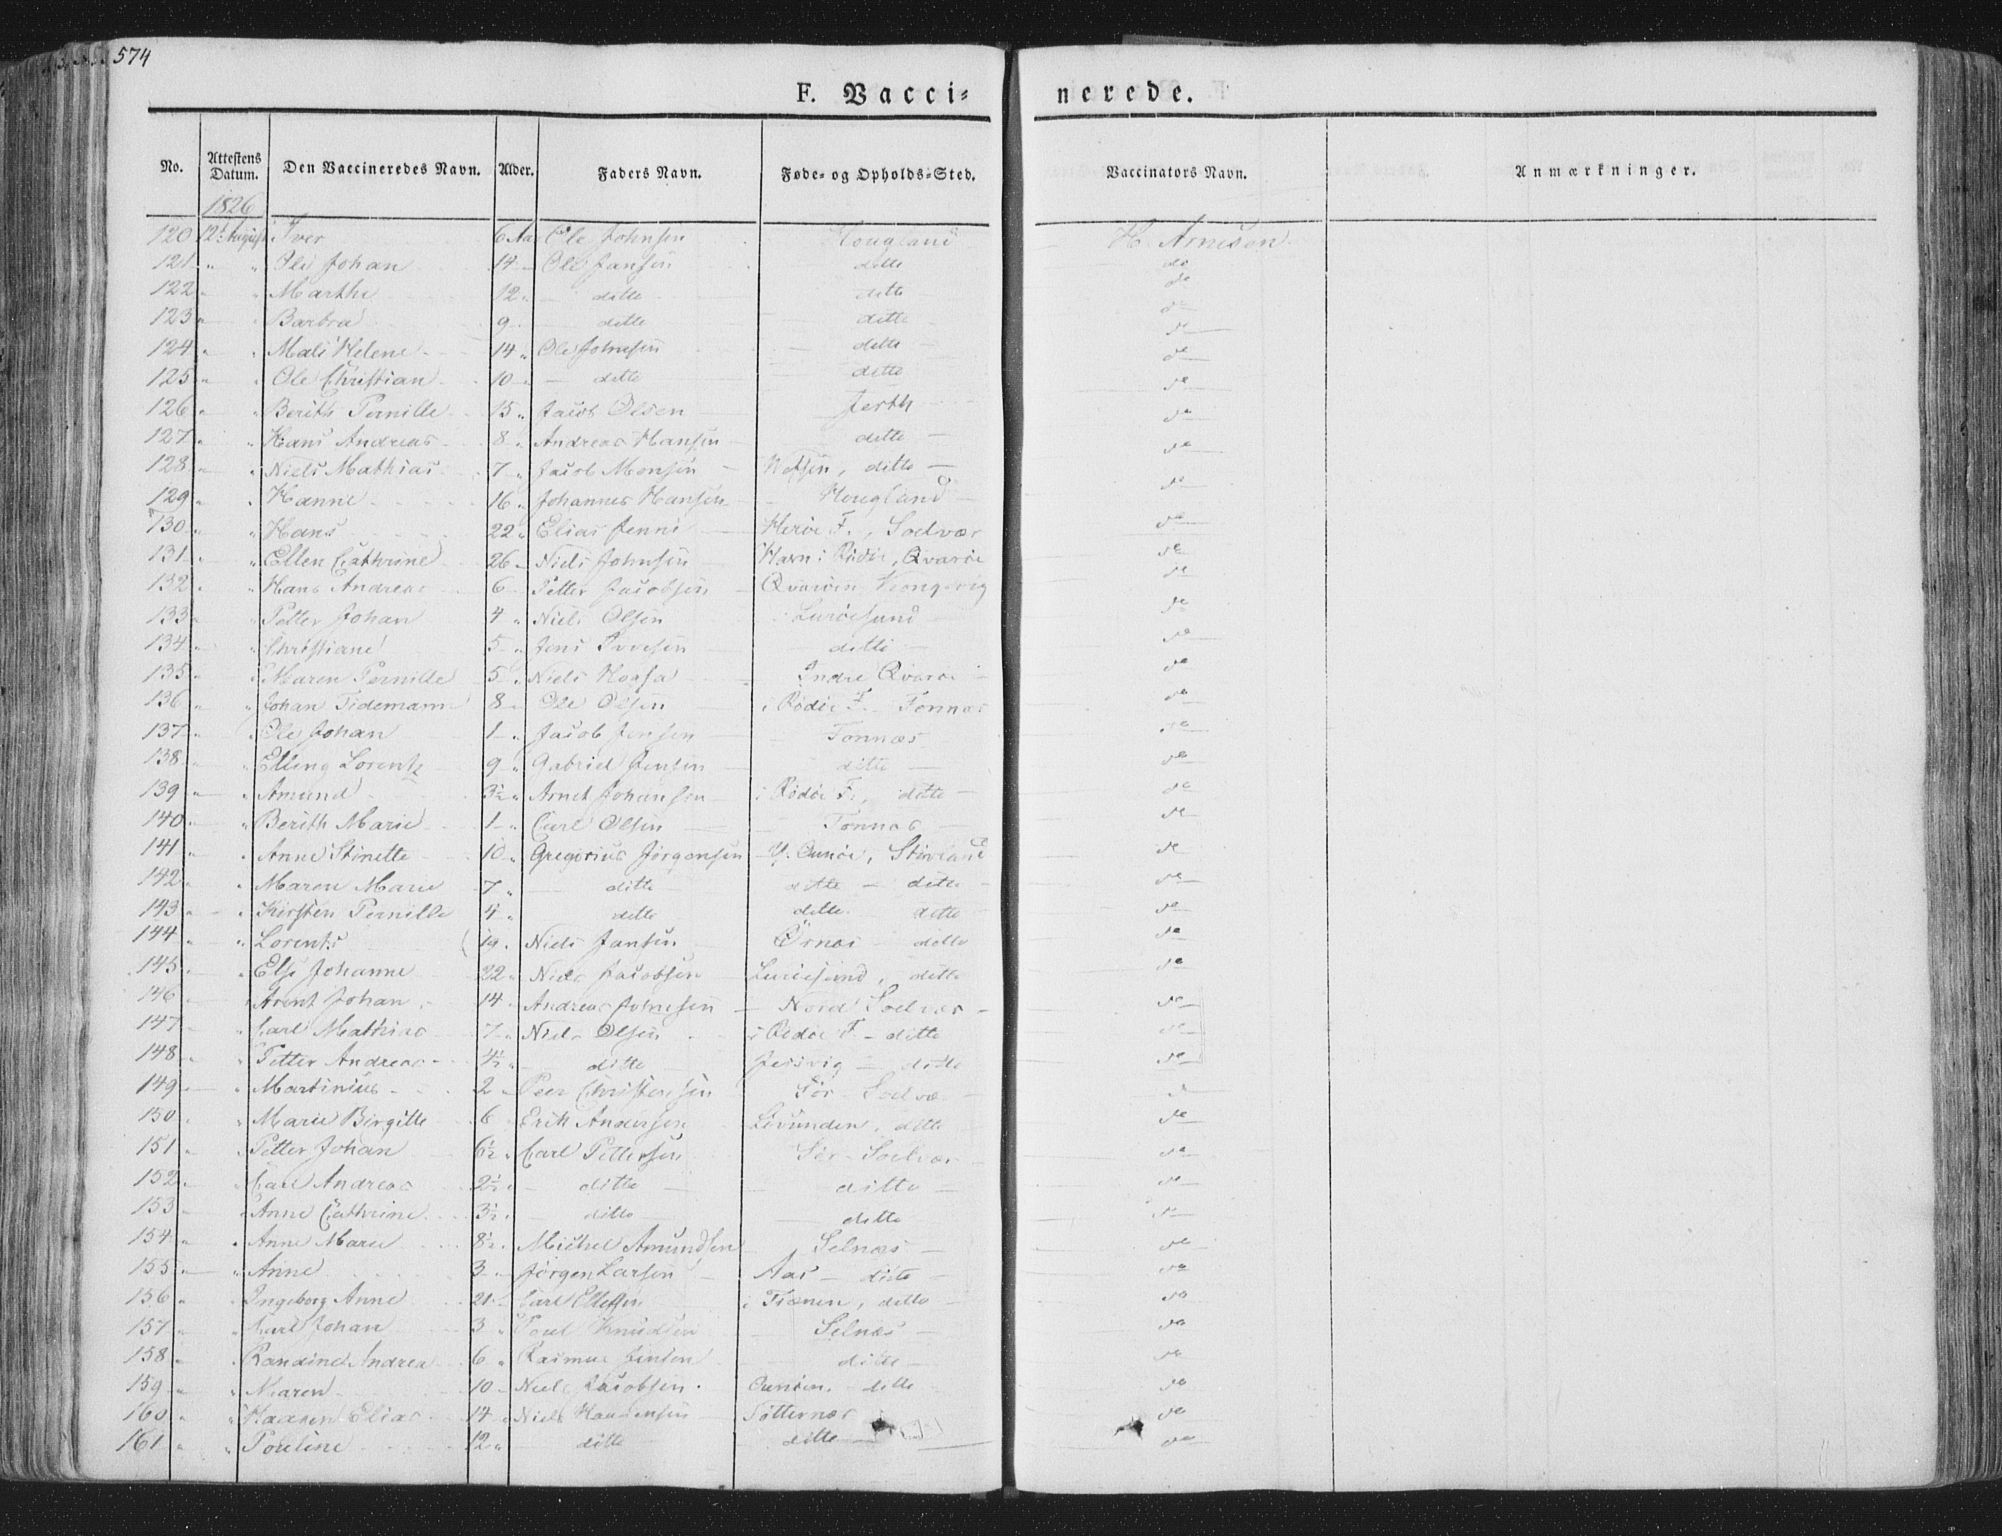 574
F. Vacci= nerede.
No. Attestens Datum. Den Vaccineredes Navn. Alder. Faders Navn. Føde- og Opholds-Sted. Vaccinators Navn. Anmærkninger.
1826
120 12te August Iver 6 Aar Ole Johnsen Hougland H. Arnesen
121 " " Ole Johan 14 Ole Jansen ditto do
122 " " Marthe 12 " ditto ditto do
123 " " Barbra 9 ditto ditto do
124 " " Mali Helene 14 " Ole Johnsen ditto do
125 " " Ole Christian 10 ditto ditto do
126 " " Berith Pernille 15 " Jacob Olsen Jerth do
127 " " Hans Andreas 8 " Andreas Hansen ditto do
128 " " Niels Mathias 7 " Jacob Monsen Wefsen, ditto do
129 " " Hanne 16 " Johannes Hansen Hougland do
130 " " Hans 22 " Elias Jenni Herøe F., Soelvær do
131 " " Ellen Cathrine 26 Niels Johnsen Havn i Rødøe, Qvarøe do
132 " " Hans Andreas 6 Petter Jacobsen Qvarøen Kongsvig do
133 " " Petter Johan 4 Niels Olsen Lurøesund do
134 " " Christiane 5 " Jens Iversen ditto do
135 " " Maren Pernille 5 " Niels Hoasa Indre Qvarøe do
136 " " Johan Tidemann 8 Ole Olsen i Rødøe F. Tonnæs do
137 " " Ole Johan 1 " Jacob Jensen Tonnæs do
138 " " Elling Lorentz 9 " Gabriel Jensen ditto do
139 " " Amund 3½ " Arnet Johansen i Rødøe F., ditto do
140 " " Berith Marie 1 " Carl Olsen Tonnæs do
141 " " Anne Stinette 10 " Gregorius Jørgensen Y. Qunøe, Stuvland do
142 " " Maren Marie 7 " ditto ditto ditto do
143 " " Kirsten Pernille 4 " ditto ditto ditto do
144 " " Lorents 19 " Niels Jansen Ørnæs ditto do
145 " " Else Johanne 22 " Niels Jacobsen Lurøesund, ditto do
146 " Arent Johan 14 Andreas Johnsen Nord Soelvær do
147 " Carl Mathias 7 " Niels Olsen i Rødøe F ditto do
148 " " Petter Andreas 4½ ditto Jessvig ditto do
149 " Martinius 2 " Peer Christensen Sør Soelvæ do
150 " " Marie Birgitte 6 Erik Andersen Lovunden, ditto do
151 " " Petter Johan 6½ " Carl Pettersen Sør Soelvær do
152 " Carl Andreas 2½ " ditto ditto do
153 " " Anne Cathrine 3½ " ditto ditto do
154 " " Anne Marie 8½ " Michel Amundsen Selnæs do
155 " " Anne 3 " Jørgen Larsen Aas ditto do
156 " " Ingeborg Anne 21 " Carl Ellefsen i Trænen, ditto do
157 " " Carl Johan 3 " Poul Knudsen Selnæs do
158 " " Randine Andrea 6 " Rasmus Jensen ditto do
159 " " Maren 10 Niels Jacobsen Qunøen, ditto do
160 " " Haagen Elias 14 " Niels Haagensen Søtternæs do
161 " " Pouline 12 " ditto ditto do